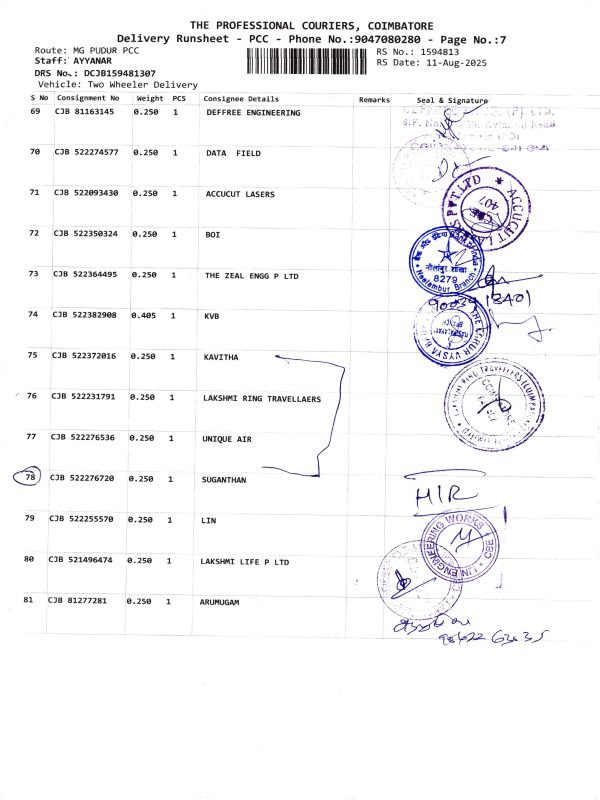 THE PROFESSIONAL COURIERS, COIMBATORE
Delivery Runsheet - PCC - Phone No.:9047080280 - Page No.:7
Route: MG PUDUR PCC
RS No.: 1594813
Staff: AYYANAR
RS Date: 11-Aug-2025
DRS No.: DCJB159481307
Vehicle: Two Wheeler Delivery
S No Consignment No Weight PCS Consignee Details Remarks Seal & Signature
69 CJB 81163145 0.250 1 DEFFREE ENGINEERING
70 CJB 522274577 0.250 1 DATA FIELD
71 CJB 522093430 0.250 1 ACCUCUT LASERS
ACCUCUT LASERS PVT.LTD
407
72 CJB 522350324 0.250 1 BOI
नीलांबुर शाखा
8279
Neelambur Branch
73 CJB 522364495 0.250 1 THE ZEAL ENGG P LTD
74 CJB 522382908 0.405 1 KVB
75 CJB 522372016 0.250 1 KAVITHA
76 CJB 522231791 0.250 1 LAKSHMI RING TRAVELLAERS
77 CJB 522276536 0.250 1 UNIQUE AIR
78 CJB 522276720 0.250 1 SUGANTHAN
HIR
79 CJB 522255570 0.250 1 LIN
LIN ENGINEERING WORKS CBE
80 CJB 521496474 0.250 1 LAKSHMI LIFE P LTD
81 CJB 81277281 0.250 1 ARUMUGAM